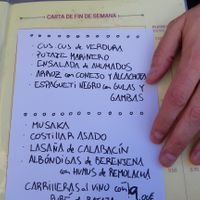 CARTA DE FIN DE SEMANA
· CUS CUS DE VERDURA
· POTAJE MARINERO
· ENSALADA DE AHUMADOS
· ARROZ CON CONEJO Y ALCACHOFA
· ESPAGUETI NEGRO CON GULAS Y
GAMBAS
· MUSAKA
· COSTILLAR ASADO
· LASAÑA DE CALABACÍN
· ALBÓNDIGAS DE BERENJENA
CON HUMUS DE REMOLACHA
CARRILLERAS AL VINO CON
PURÉ DE PATATA